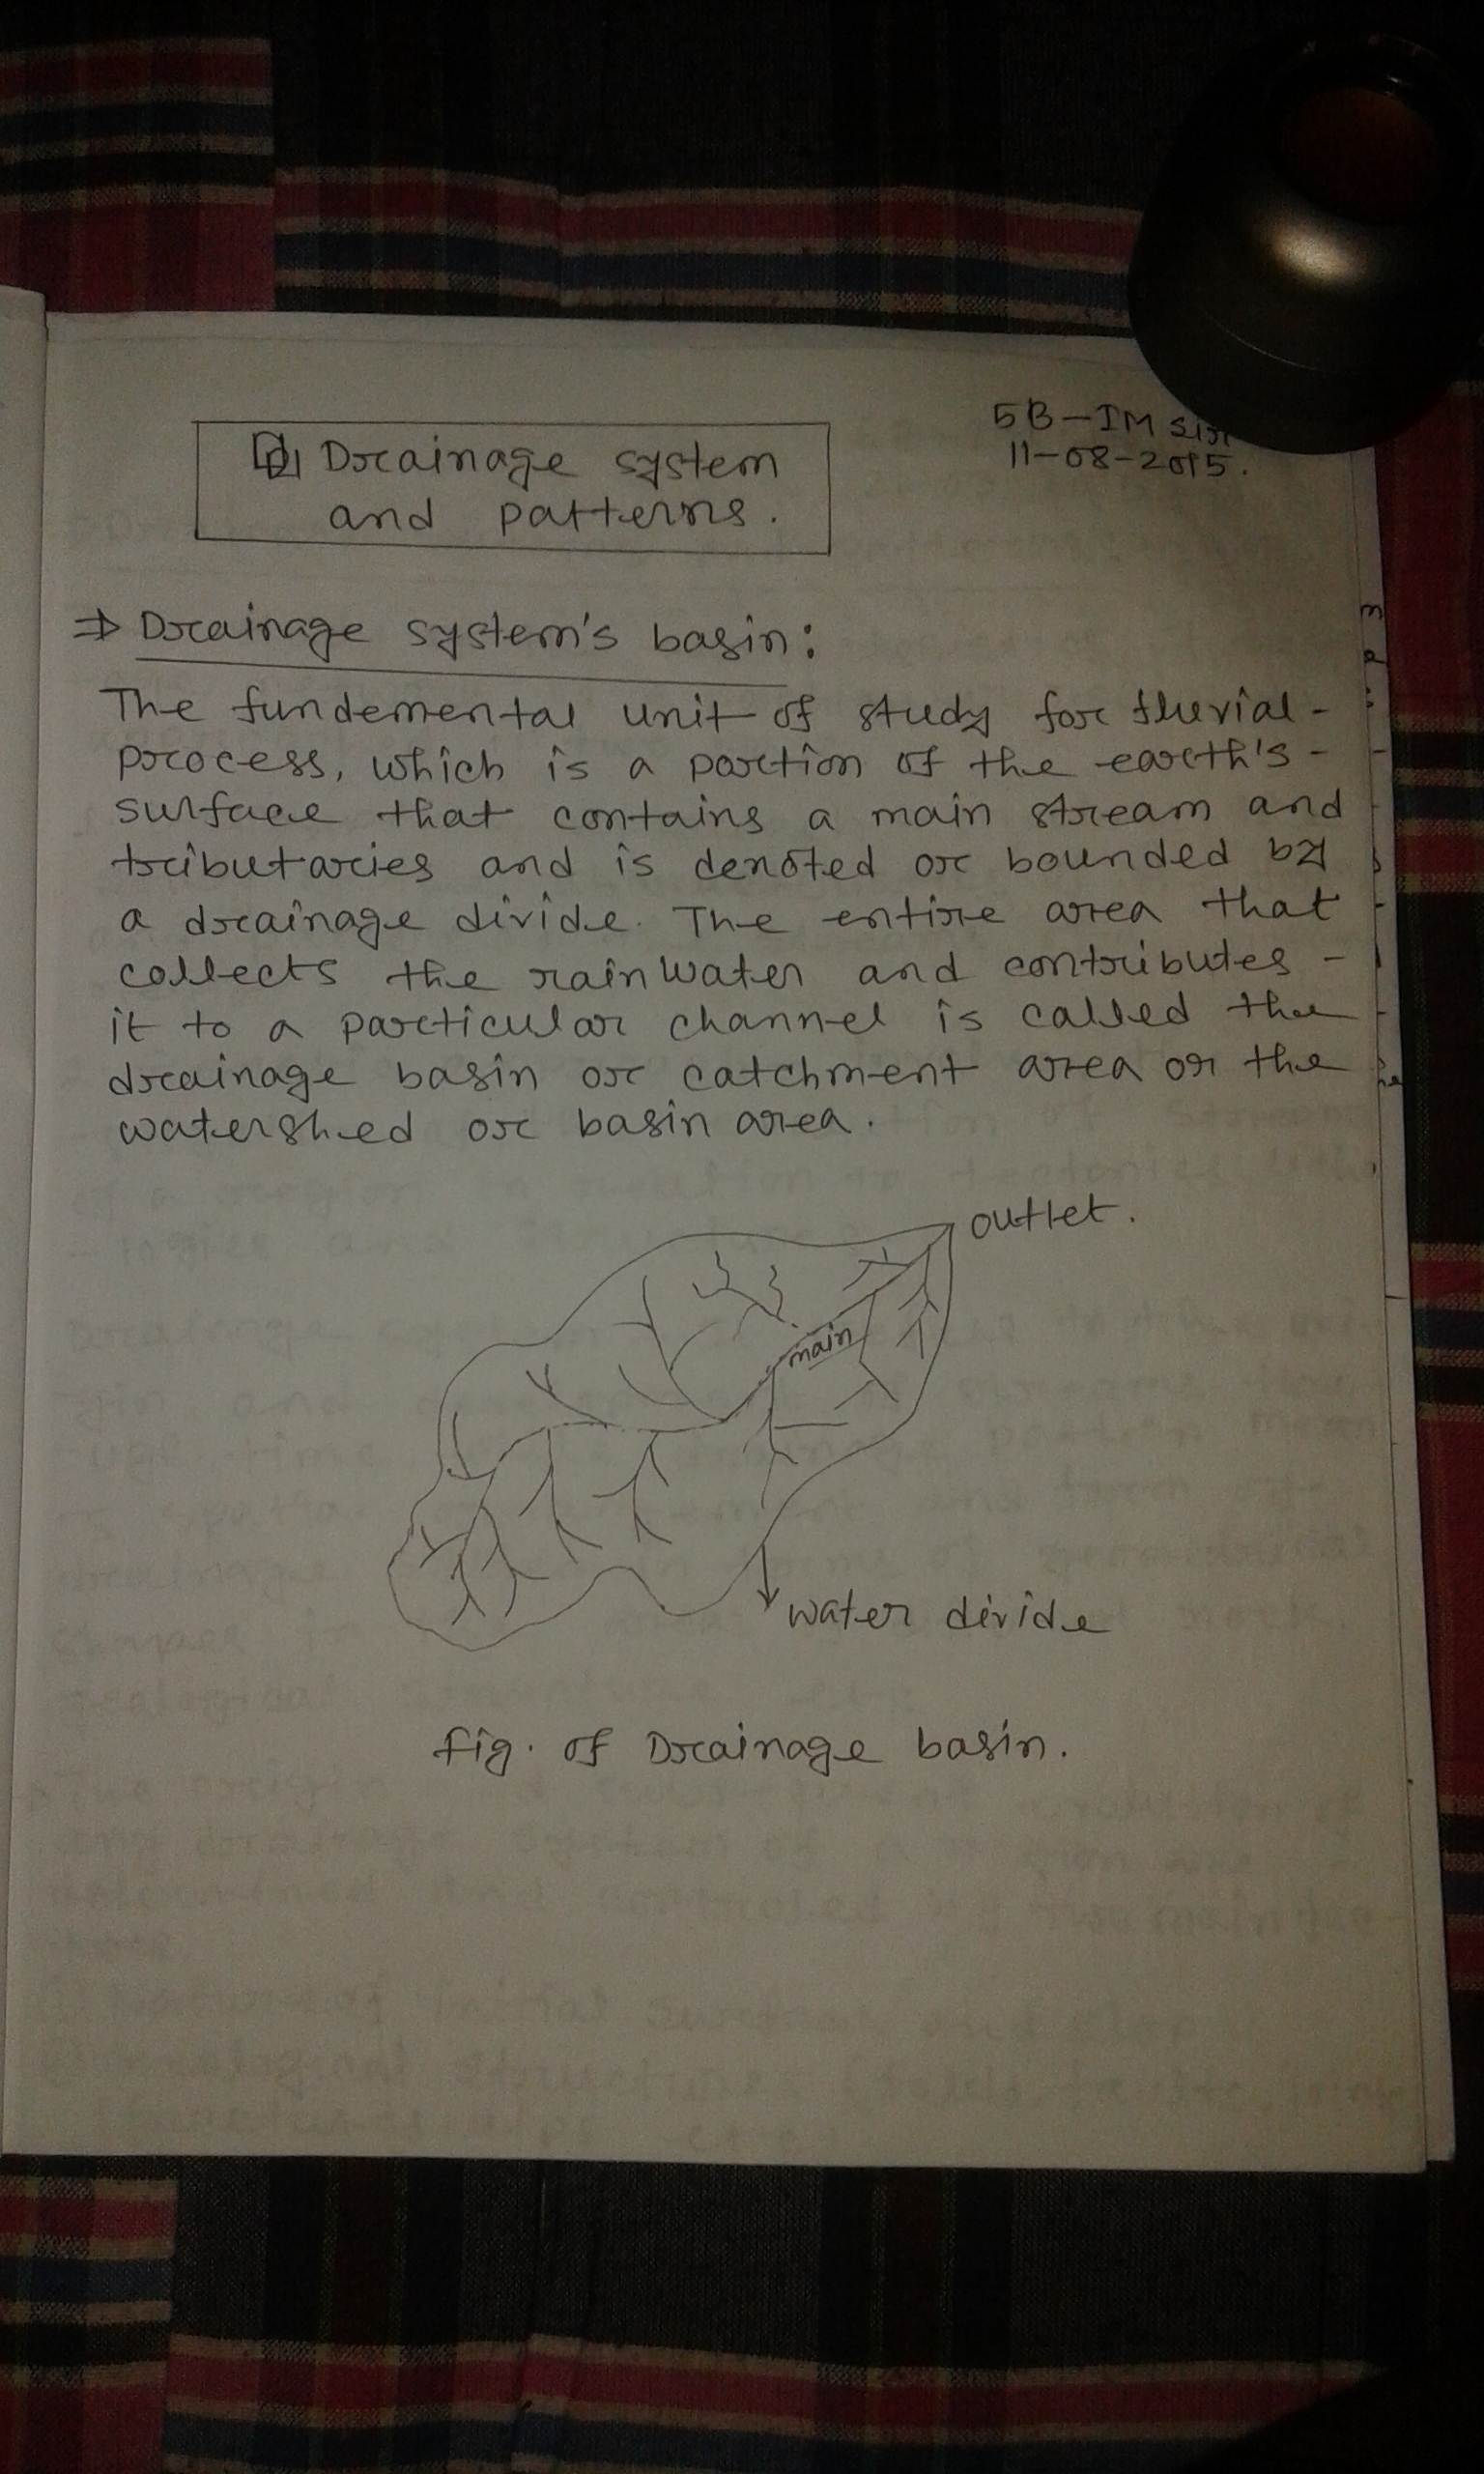 5B-IM sir
11-08-2015.
Drainage system
and patterns.
⇒ Drainage system's basin:
The fundemental unit of study for fluvial-
process, which is a portion of the earth's-
surface that contains a main stream and
tributaries and is denoted or bounded by
a drainage divide. The entire area that
collects the rainwater and contributes-
it to a particular channel is called the
drainage basin or catchment area or the
watershed or basin area.
outlet.
main
water divide
fig. of Drainage basin.